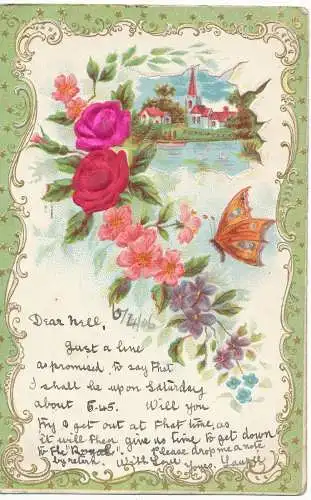 Dear Nell,
6/4/06
Just a line
as promised, to say that
I shall be up on Saturday
about 6.45. Will you
try & get out at that time, as
it will then give us time to get down
to the "Royal". Please drop me a note
by return. With Love, Yours,